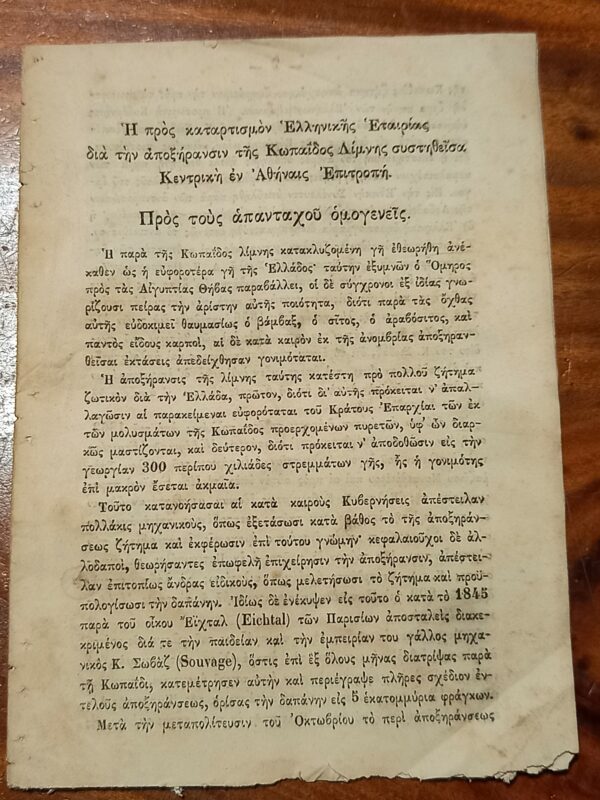 Ἡ πρὸς καταρτισμὸν Ἑλληνικῆς Ἑταιρίας
διὰ τὴν ἀποξήρανσιν τῆς Κωπαΐδος Λίμνης συστηθεῖσα
Κεντρικὴ ἐν Ἀθήναις Ἐπιτροπή.
Πρὸς τοὺς ἁπανταχοῦ ὁμογενεῖς.
Ἡ παρὰ τῆς Κωπαΐδος λίμνης κατακλυζομένη γῆ ἐθεωρήθη ἀνέ-
καθεν ὡς ἡ εὐφοροτέρα γῆ τῆς Ἑλλάδος· ταύτην ἐξυμνῶν ὁ Ὅμηρος
πρὸς τὰς Αἰγυπτίας Θήβας παραβάλλει, οἱ δὲ σύγχρονοι ἐξ ἰδίας γνω-
ρίζουσι πείρας τὴν ἀρίστην αὐτῆς ποιότητα, διότι παρὰ τὰς ὄχθας
αὐτῆς εὐδοκιμεῖ θαυμασίως ὁ βάμβαξ, ὁ σῖτος, ὁ ἀραβόσιτος, καὶ
παντὸς εἴδους καρποὶ, αἱ δὲ κατὰ καιρὸν ἐκ τῆς ἀνομβρίας ἀποξηραν-
θεῖσαι ἐκτάσεις ἀπεδείχθησαν γονιμόταται.
Ἡ ἀποξήρανσις τῆς λίμνης ταύτης κατέστη πρὸ πολλοῦ ζήτημα
ζωτικὸν διὰ τὴν Ἑλλάδα, πρῶτον, διότι δι' αὐτῆς πρόκειται ν' ἀπαλ-
λαγῶσιν αἱ παρακείμεναι εὐφορόταται τοῦ Κράτους Ἐπαρχίαι τῶν ἐκ
τῶν μολυσμάτων τῆς Κωπαΐδος προερχομένων πυρετῶν, ὑφ' ὧν διαρ-
κῶς μαστίζονται, καὶ δεύτερον, διότι πρόκειται ν' ἀποδοθῶσιν εἰς τὴν
γεωργίαν 300 περίπου χιλιάδες στρεμμάτων γῆς, ἧς ἡ γονιμότης
ἐπὶ μακρὸν ἔσεται ἀκμαία.
Τοῦτο κατανοήσασαι αἱ κατὰ καιροὺς Κυβερνήσεις ἀπέστειλαν
πολλάκις μηχανικοὺς, ὅπως ἐξετάσωσι κατὰ βάθος τὸ τῆς ἀποξηράν-
σεως ζήτημα καὶ ἐκφέρωσιν ἐπὶ τούτου γνώμην· κεφαλαιοῦχοι δὲ ἀλ-
λοδαποὶ, θεωρήσαντες ἐπωφελῆ ἐπιχείρησιν τὴν ἀποξήρανσιν, ἀπέστει-
λαν ἐπιτοπίως ἄνδρας εἰδικοὺς, ὅπως μελετήσωσι τὸ ζήτημα καὶ προϋ-
πολογίσωσι τὴν δαπάνην. Ἰδίως δὲ ἐνέκυψεν εἰς τοῦτο ὁ κατὰ τὸ 1845
παρὰ τοῦ οἴκου Ἔϊχταλ (Eichtal) τῶν Παρισίων ἀποσταλεὶς διακε-
κριμένος διά τε τὴν παιδείαν καὶ τὴν ἐμπειρίαν του γάλλος μηχα-
νικὸς Κ. Σωβὰζ (Souvage), ὅστις ἐπὶ ἓξ ὅλους μῆνας διατρίψας παρὰ
τῇ Κωπαΐδι, κατεμέτρησεν αὐτὴν καὶ περιέγραψε πλῆρες σχέδιον ἐν-
τελοῦς ἀποξηράνσεως, ὁρίσας τὴν δαπάνην εἰς 5 ἑκατομμύρια φράγκων.
Μετὰ τὴν μεταπολίτευσιν τοῦ Ὀκτωβρίου τὸ περὶ ἀποξηράνσεως